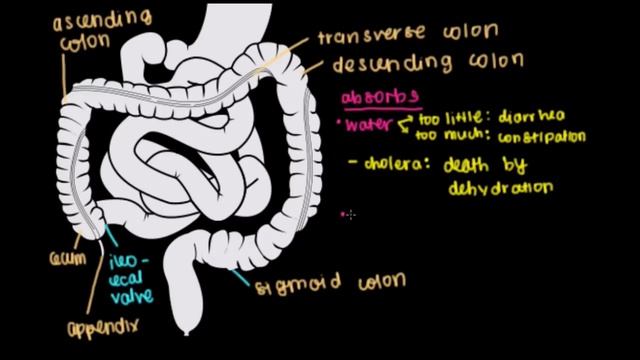 ascending
colon
transverse colon
descending colon
absorbs
• water → too little: diarrhea
→ too much: constipation
- cholera: death by
dehydration
•
cecum
ileo-
cecal
valve
appendix
sigmoid colon